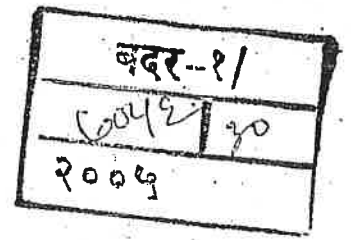 बदर-१/
६०५६ | ३०
२००५